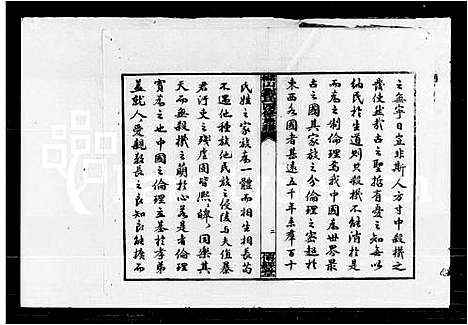 之無寧日豈非斯人方寸中殺機之
發使然哉古之聖哲有憂之知無以
納民於生道則其殺機不能消於是
而爲之制倫理焉我中國爲世界最
古之國其家族之分倫理之密超於
東西各國者甚遠五千年來群百十
二
氏姓之家族爲一體而相生相長苟
不遇他種族他民族之侵陵與夫值暴
君汙吏之殘虐固皆熙皞皞同樂其
天而無殺機之萌於心焉是者倫理
實爲之也中國之倫理立基於孝弟
蓋就人之愛親敬長之良知良能擴而